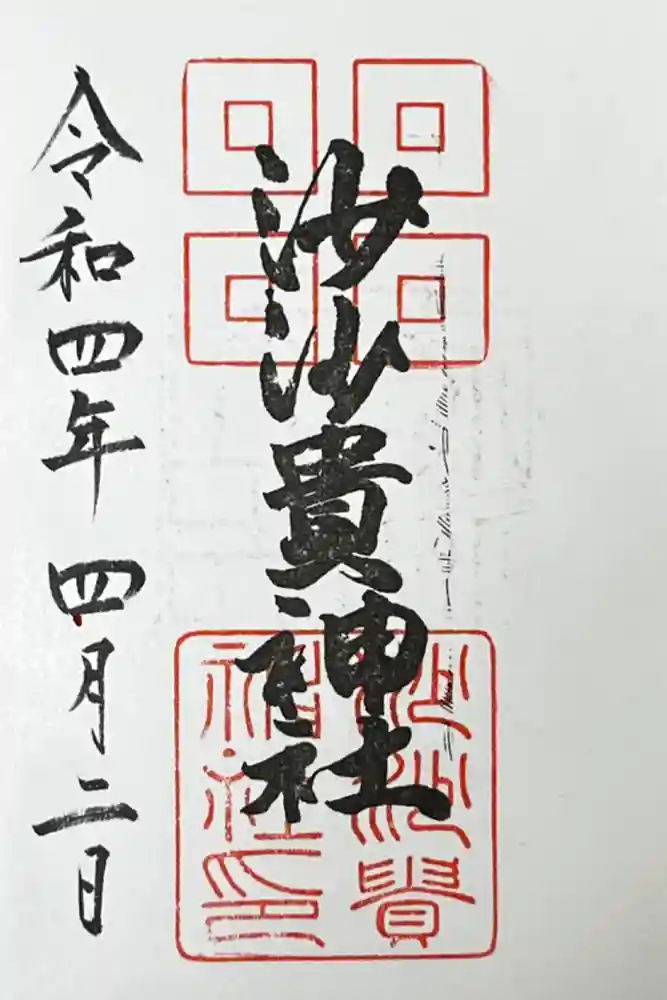 沙沙貴神社
沙沙貴
神社印
令和四年 四月二日